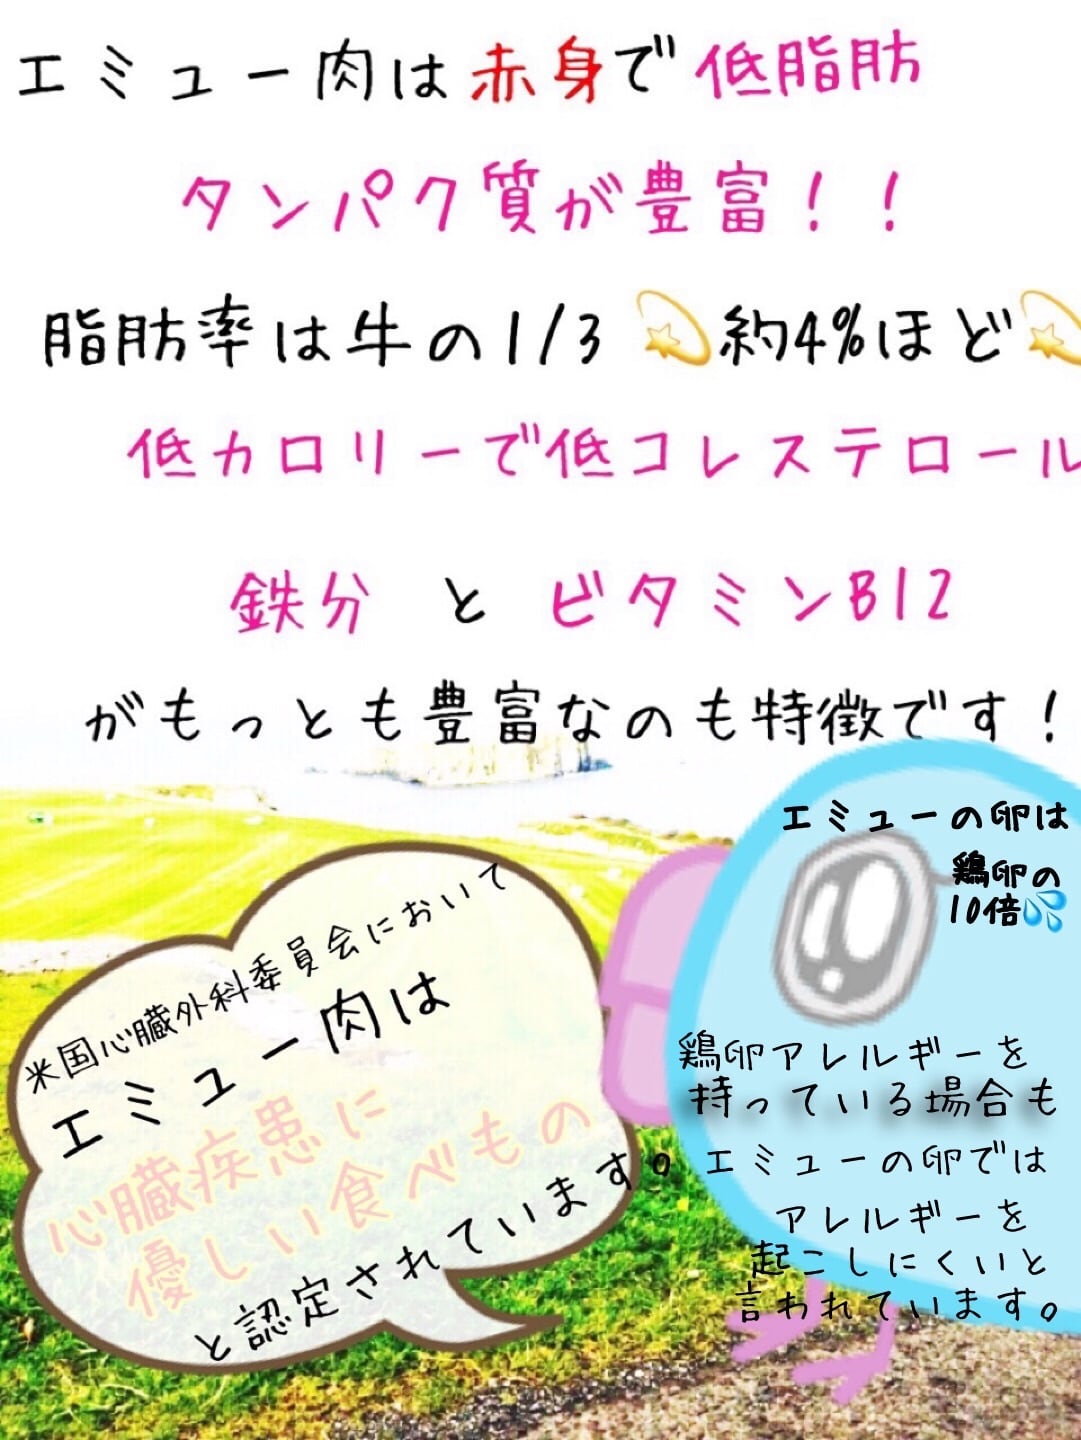 エミュー肉は赤身で低脂肪
タンパク質が豊富！！
脂肪率は牛の1/3 💫約4%ほど💫
低カロリーで低コレステロール
鉄分 と ビタミンB12
がもっとも豊富なのも特徴です！
エミューの卵は
鶏卵の
10倍💦
米国心臓外科委員会において
エミュー肉は
心臓疾患に
優しい食べもの
と認定されています。
鶏卵アレルギーを
持っている場合も
エミューの卵では
アレルギーを
起こしにくいと
言われています。